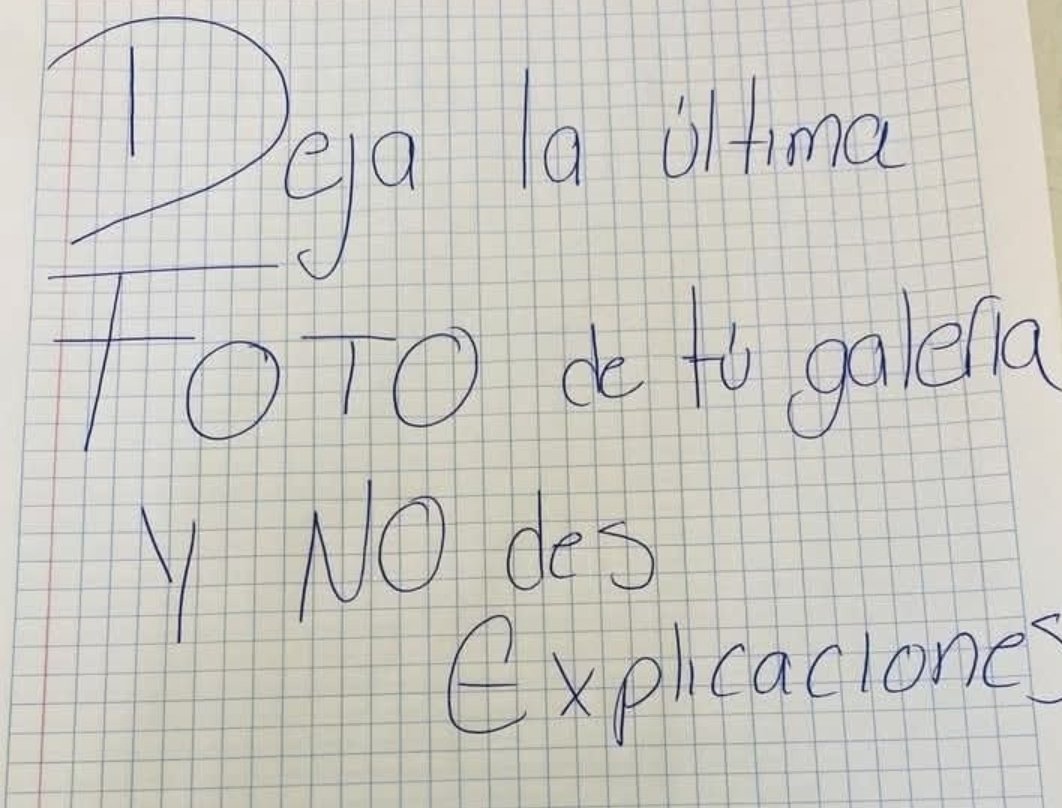 Deja la última
FOTO de tú galería
Y NO des
Explicaciones